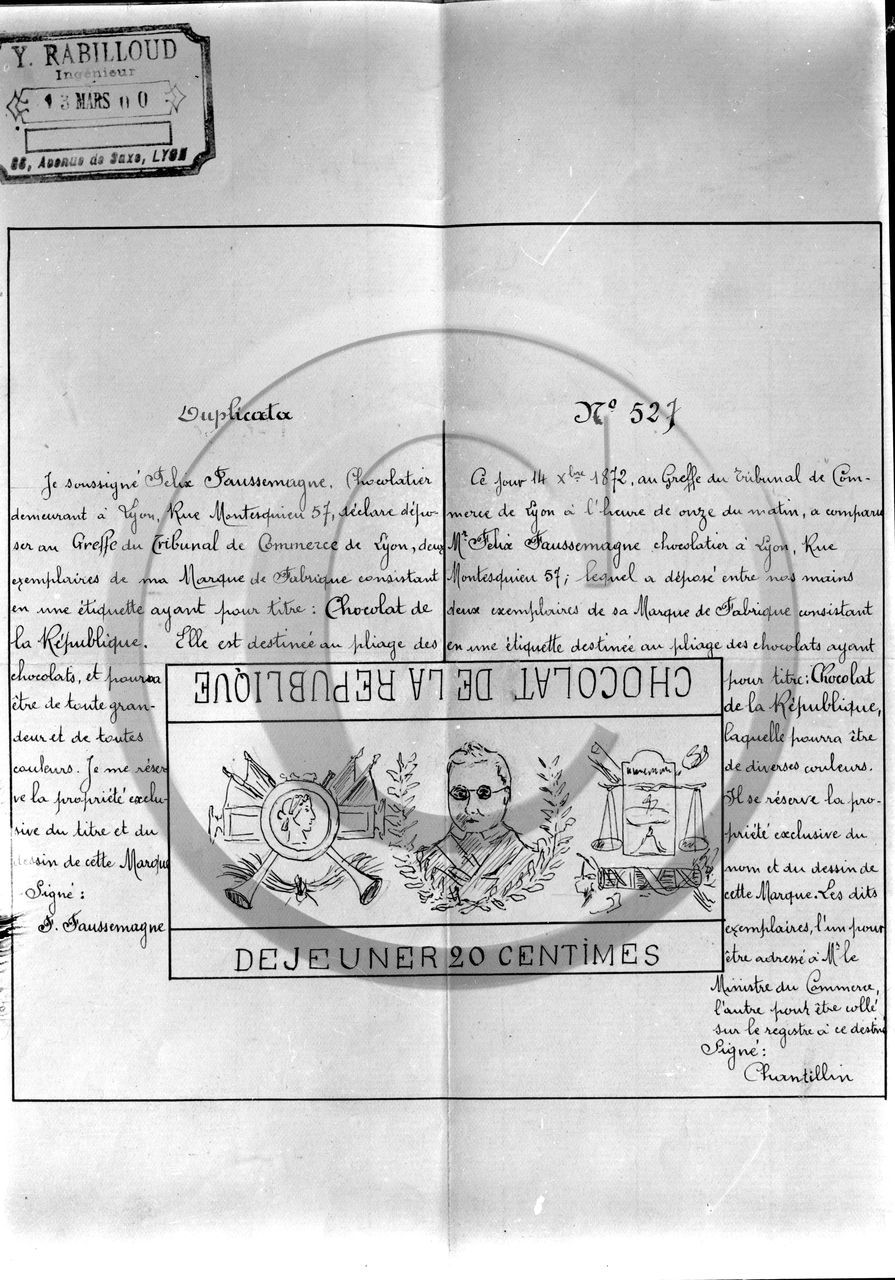 Y. RABILLOUD
Ingénieur
13 MARS 00
66, Avenue de Saxe, LYON
Duplicata
Je soussigné Felix Faussemagne, Chocolatier
demeurant à Lyon, Rue Montesquieu 57, déclare dépo-
ser au Greffe du Tribunal de Commerce de Lyon, deux
exemplaires de ma Marque de Fabrique consistant
en une étiquette ayant pour titre : Chocolat de
la République. Elle est destinée au pliage des
chocolats, et pourra
être de toute gran-
deur et de toutes
couleurs. Je me réser
ve la propriété exclu-
sive du titre et du
dessin de cette Marque
Signé :
F. Faussemagne
No 527
Ce jour 14 Xbre 1872, au Greffe du Tribunal de Com-
merce de Lyon à l'heure de onze du matin, a comparu
Mr Felix Faussemagne chocolatier à Lyon, Rue
Montesquieu 57; lequel a déposé entre nos mains
deux exemplaires de sa Marque de Fabrique consistant
en une étiquette destinée au pliage des chocolats ayant
pour titre: Chocolat
de la République,
laquelle pourra être
de diverses couleurs.
Il se réserve la pro-
priété exclusive du
nom et du dessin de
cette Marque. Les dits
exemplaires, l'un pour
être adressé à Mr le
Ministre du Commerce,
l'autre pour être collé
sur le registre à ce destiné
Signé :
Chantillin
CHOCOLAT DE LA REPUBLIQUE
DEJEUNER 20 CENTIMES